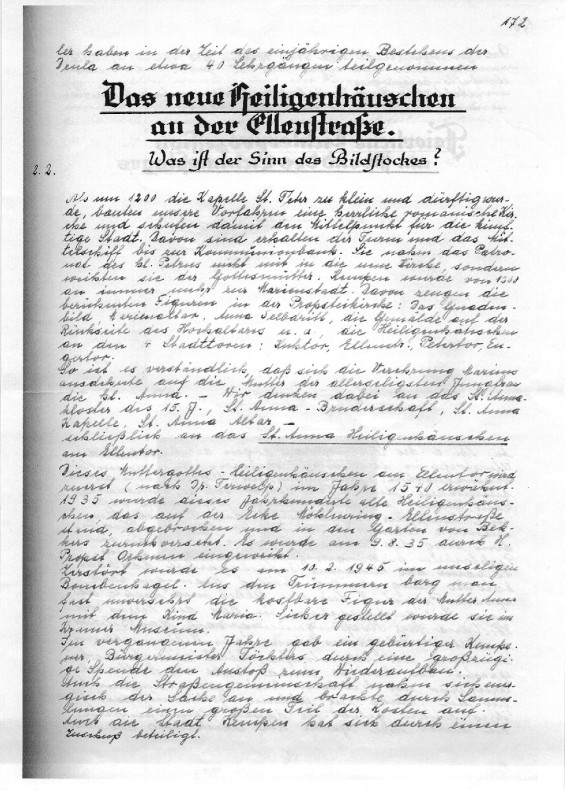 172
ler haben in der Zeit des einjährigen Bestehens der
Deula an etwa 40 Lehrgängen teilgenommen
Das neue Heiligenhäuschen
an der Ellenstraße.
Was ist der Sinn des Bildstockes?
2.2.
Als um 1200 die Kapelle St. Peter zu klein und dürftig wur-
de, bauten unsere Vorfahren eine herrliche romanische Kir-
che und schufen damit den Mittelpunkt für die künf-
tige Stadt. Davon sind erhalten der Turm und das Mit-
telschiff bis zur Kommunionbank. Sie nahmen das Patro-
nat des hl. Petrus nicht mit in die neue Kirche, sondern
weihten sie der Gottesmutter. Kempen wurde von 1300
an immer mehr zur Marienstadt. Davon zeugen die
berühmten Figuren in der Propsteikirche: Das Gnaden-
bild, Marienaltar, Anna Selbdritt, die Gemälde auf der
Rückseite des Hochaltars u. a. die Heiligenhäuschen
an den 4 Stadttoren: Kuhtor, Ellentor, Petertor, En-
gertor.
So ist es verständlich, daß sich die Verehrung Mariens
ausdehnte auf die Mutter der allerseligsten Jungfrau
die hl. Anna. – Wir denken dabei an das St. Anna-
kloster des 15. J., St. Anna - Bruderschaft, St. Anna
Kapelle, St. Anna Altar, –
schließlich an das St. Anna Heiligenhäuschen
am Ellentor.
Dieses Muttergottes - Heiligenhäuschen am Ellentor wird
zuerst (nach Dr. Terwelp) im Jahre 1570 erwähnt.
1935 wurde dieses Jahrhunderte alte Heiligenhäus-
chen, das auf der Ecke Möhlenring - Ellenstraße
stand, abgebrochen und in den Garten von Bek-
kers zurückversetzt. Es wurde am 9.8.35 durch H.
Propst Oehmen eingeweiht.
Zerstört wurde es am 10.2.1945 im unseligen
Bombenhagel. Aus den Trümmern barg man
fast unversehrt die kostbare Figur der Mutter Anna
mit dem Kind Maria. Sicher gestellt wurde sie im
Kramer Museum.
Im vergangenen Jahre gab ein gebürtiger Kempe-
ner, Bürgermeister Töcklers durch eine großzügi-
ge Spende den Anstoß zum Wiederaufbau.
Auch die Straßengemeinschaft nahm sich ener-
gisch der Sache an und brachte durch Samm-
lungen einen großen Teil der Kosten auf.
Auch die Stadt Kempen hat sich durch einen
Zuschuß beteiligt.